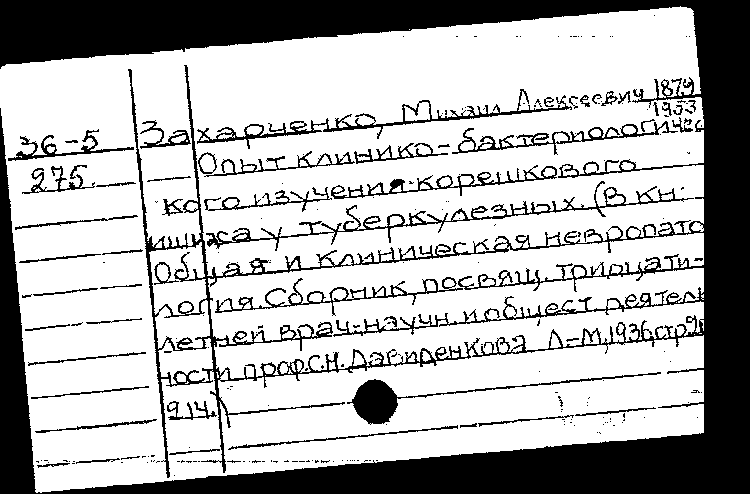 36-5
275.
Захарченко, Михаил Алексеевич 1879
1953
Опыт клинико-бактериологичес
кого изучения корешкового
ишиаса у туберкулезных. (В кн:
Общая и клиническая невропато
логия. Сборник, посвящ. тридцати-
летней врач.-научн. и общест. деятель
ности проф. С.Н. Давиденкова Л-М, 1936, стр.
214.)